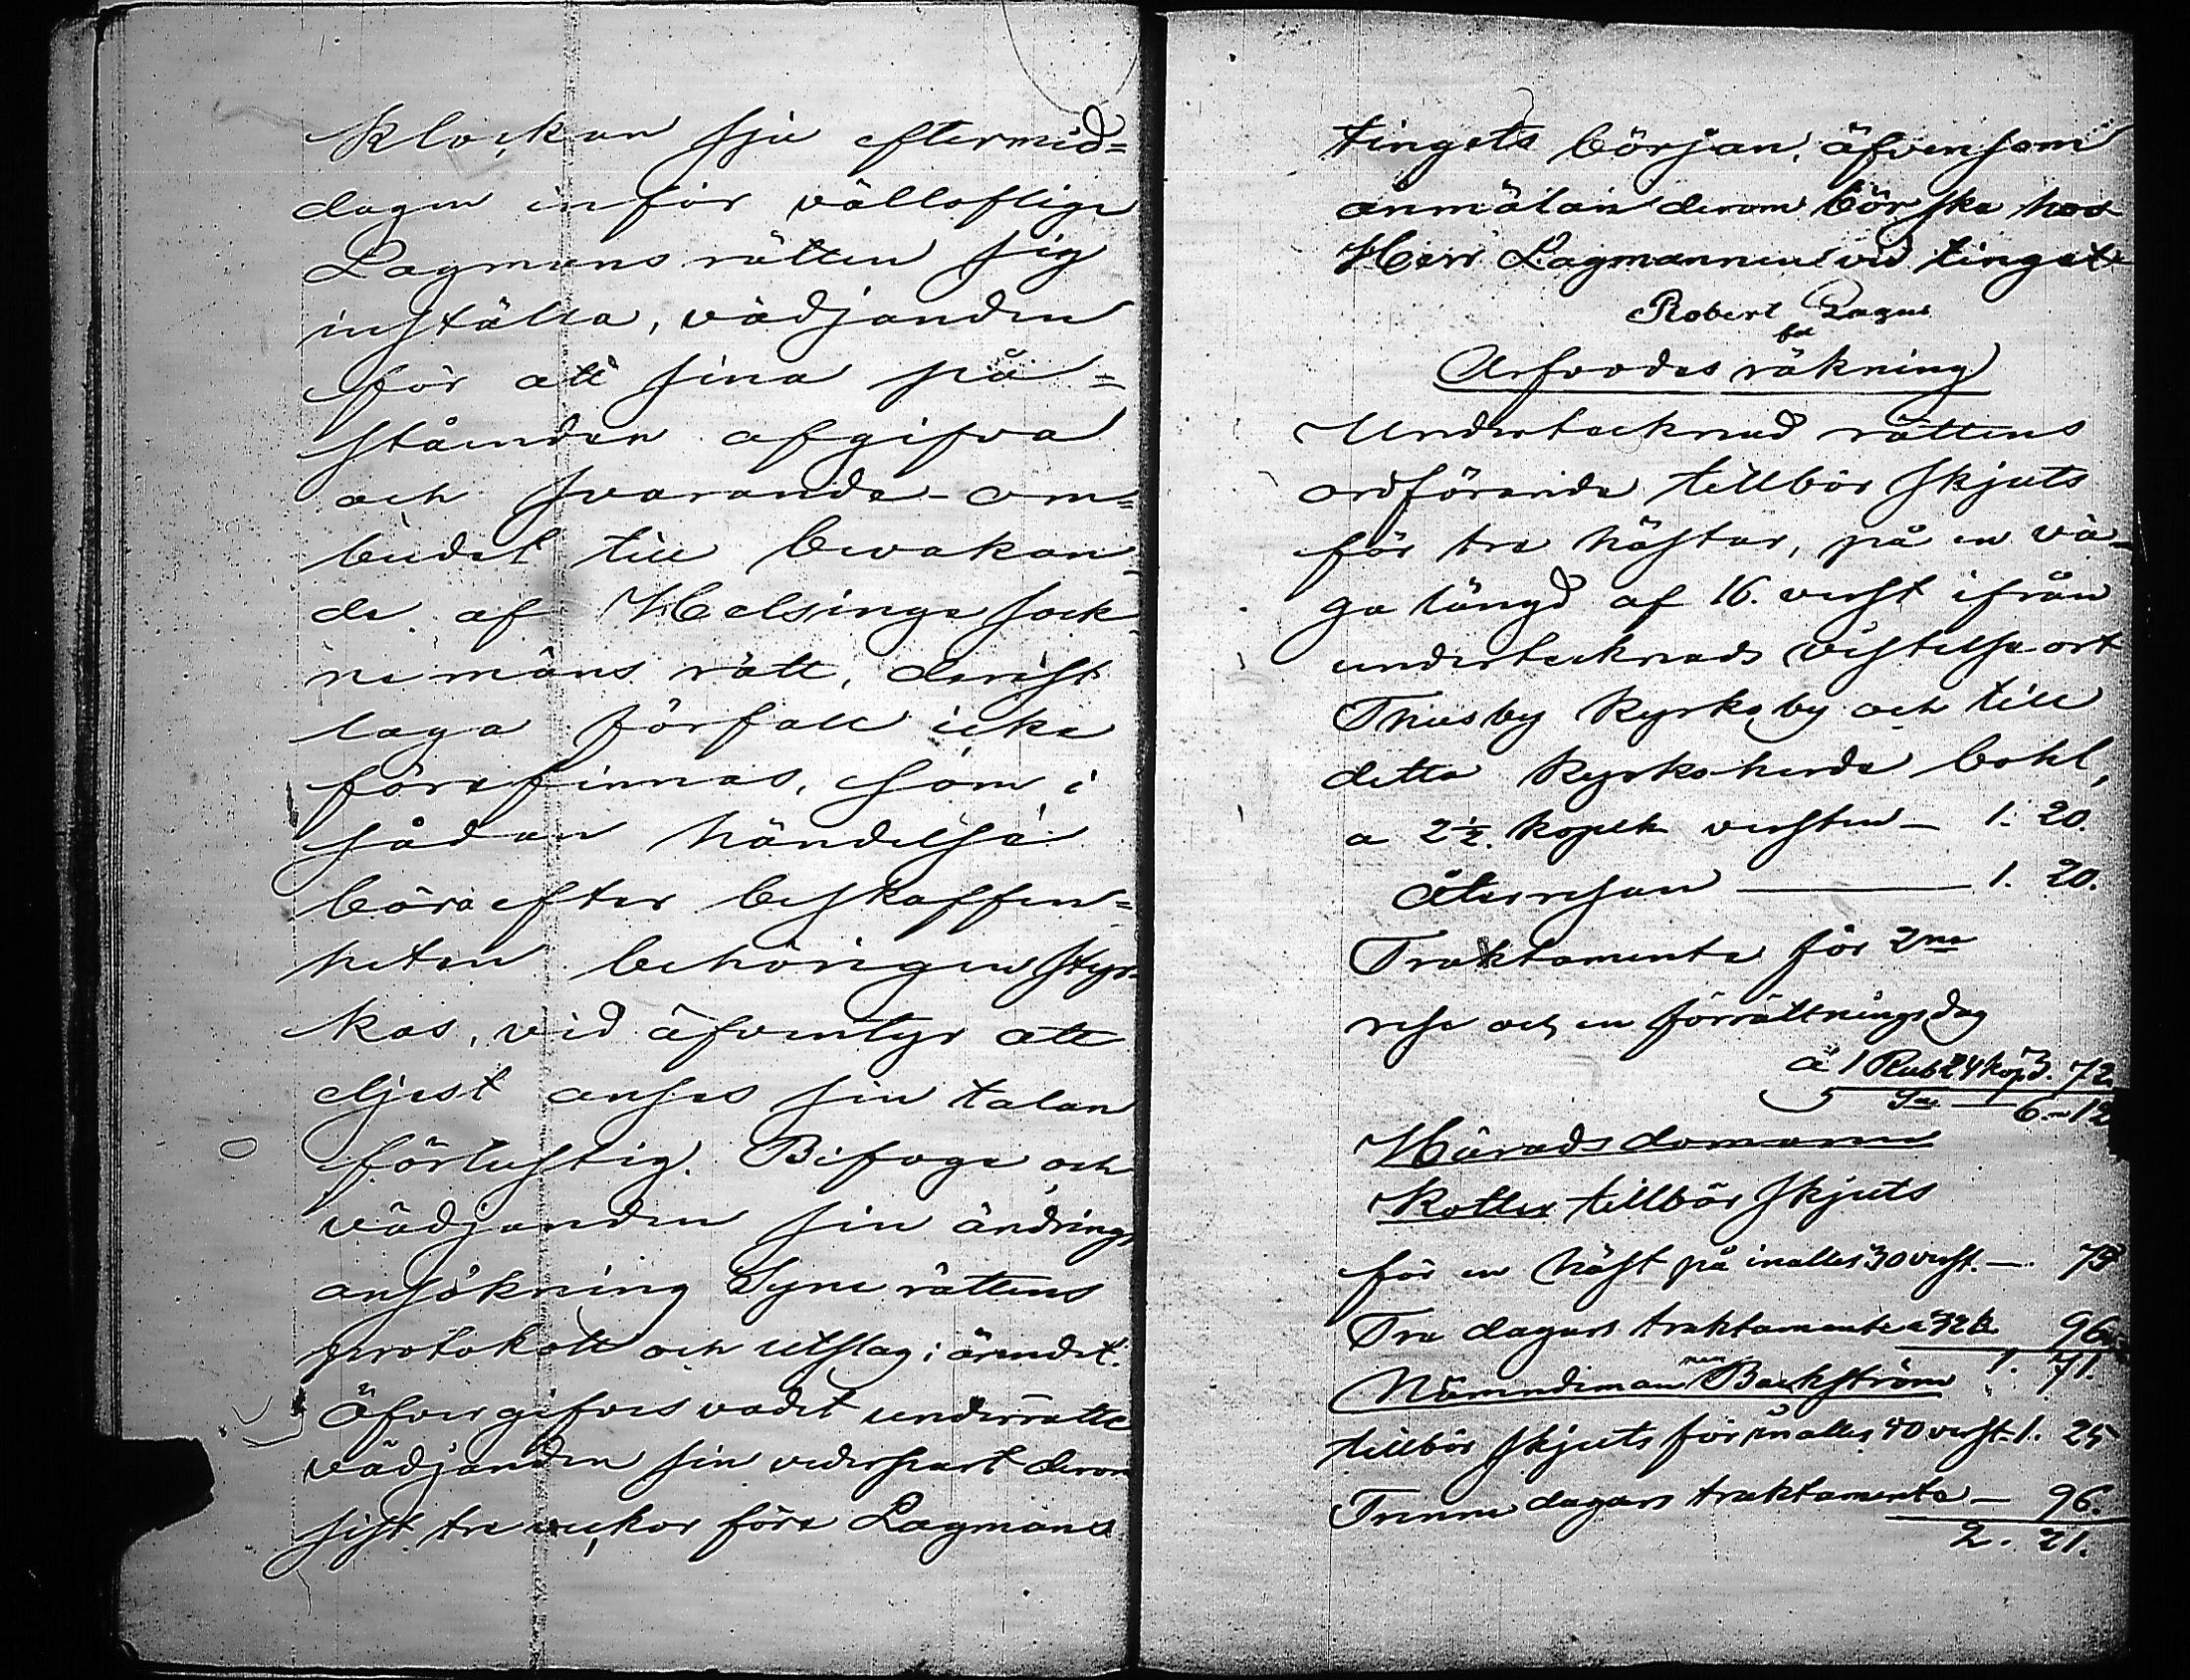 klockan sju eftermid=
dagen inför välloflige
Lagmans rätten sig
inställa, vädjanden
för att sina på=
ståenden afgifva
och svarande-om=
budet till bevakan=
de af Helsinge sock
ne mäns rätt, derest
laga förfall icke
förefinnas, som i
sådan händelse
böra efter beskaffen=
heten behörigen styr=
kas, vid äfventyr att
eljest anses sin talan
förlustig. Bifoge och
vädjanden sin ändrings
ansökning Syne rättens
protokoll och utslag i ärendet.
Äfvergifves vadet underrätte
vädjanden sin vederpart derom
sist tre veckor före Lagmans
tingets början, äfvensom
anmälan derom bör ske hos
Herr Lagmannen vid tinget.
Robert Lagus
Arfvodes räkning
Undertecknad rättens
ordförande tillbör skjuts
för tre hästar, på en vä-
ga längd af 16. verst ifrån
undertecknads vistelse ort
Thusby Kyrkoby och till
detta kyrkoherde bohl,
a 2½. kopek versten — 1. 20.
Återresan — 1. 20.
Traktamente för 2ne
rese och en förrättningsdag
à 1 Rub 24 kop 3. 72.
Sa — 6. 12
Härads domaren
Kotter tillbör skjuts
för en häst på inalles 30 verst. — 75
Tre dagars traktamente a 32 k. 96
1. 71.
Nämndemannen Backström
tillbör skjuts för inalles 40 verst. 1. 25
Trenne dagars traktamente — 96.
2. 21.